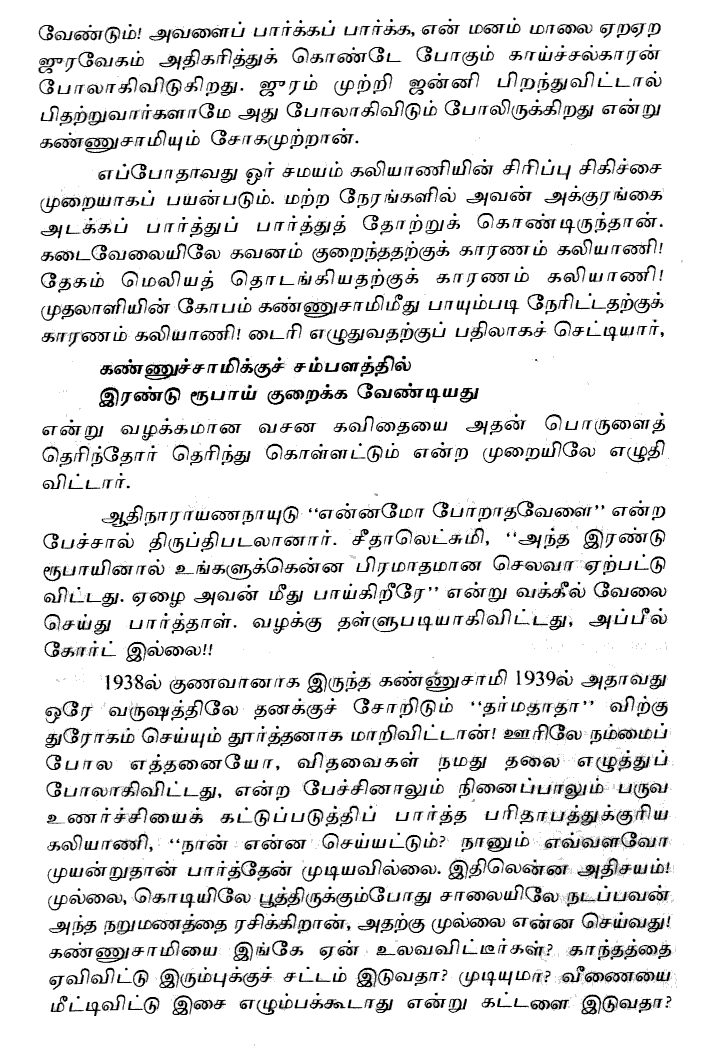 வேண்டும்! அவளைப் பார்க்கப் பார்க்க, என் மனம் மாலை ஏறஏற
ஜுரவேகம் அதிகரித்துக் கொண்டே போகும் காய்ச்சல்காரன்
போலாகிவிடுகிறது. ஜுரம் முற்றி ஜன்னி பிறந்துவிட்டால்
பிதற்றுவார்களாமே அது போலாகிவிடும் போலிருக்கிறது என்று
கண்ணுசாமியும் சோகமுற்றான்.
எப்போதாவது ஒர் சமயம் கலியாணியின் சிரிப்பு சிகிச்சை
முறையாகப் பயன்படும். மற்ற நேரங்களில் அவன் அக்குரங்கை
அடக்கப் பார்த்துப் பார்த்துத் தோற்றுக் கொண்டிருந்தான்.
கடைவேலையிலே கவனம் குறைந்ததற்குக் காரணம் கலியாணி!
தேகம் மெலியத் தொடங்கியதற்குக் காரணம் கலியாணி!
முதலாளியின் கோபம் கண்ணுசாமிமீது பாயும்படி நேரிட்டதற்குக்
காரணம் கலியாணி! டைரி எழுதுவதற்குப் பதிலாகச் செட்டியார்,
கண்ணுச்சாமிக்குச் சம்பளத்தில்
இரண்டு ரூபாய் குறைக்க வேண்டியது
என்று வழக்கமான வசன கவிதையை அதன் பொருளைத்
தெரிந்தோர் தெரிந்து கொள்ளட்டும் என்ற முறையிலே எழுதி
விட்டார்.
ஆதிநாராயணநாயுடு “என்னமோ போறாதவேளை” என்ற
பேச்சால் திருப்திபடலானார். சீதாலெட்சுமி, “அந்த இரண்டு
ரூபாயினால் உங்களுக்கென்ன பிரமாதமான செலவா ஏற்பட்டு
விட்டது. ஏழை அவன் மீது பாய்கிறீரே” என்று வக்கீல் வேலை
செய்து பார்த்தாள். வழக்கு தள்ளுபடியாகிவிட்டது, அப்பீல்
கோர்ட் இல்லை!!
1938ல் குணவானாக இருந்த கண்ணுசாமி 1939ல் அதாவது
ஒரே வருஷத்திலே தனக்குச் சோறிடும் “தர்மதாதா” விற்கு
துரோகம் செய்யும் தூர்த்தனாக மாறிவிட்டான்! ஊரிலே நம்மைப்
போல எத்தனையோ, விதவைகள் நமது தலை எழுத்துப்
போலாகிவிட்டது, என்ற பேச்சினாலும் நினைப்பாலும் பருவ
உணர்ச்சியைக் கட்டுப்படுத்திப் பார்த்த பரிதாபத்துக்குரிய
கலியாணி, “நான் என்ன செய்யட்டும்? நானும் எவ்வளவோ
முயன்றுதான் பார்த்தேன் முடியவில்லை. இதிலென்ன அதிசயம்!
முல்லை, கொடியிலே பூத்திருக்கும்போது சாலையிலே நடப்பவன்
அந்த நறுமணத்தை ரசிக்கிறான், அதற்கு முல்லை என்ன செய்வது!
கண்ணுசாமியை இங்கே ஏன் உலவவிட்டீர்கள்? காந்தத்தை
ஏவிவிட்டு இரும்புக்குச் சட்டம் இடுவதா? முடியுமா? வீணையை
மீட்டிவிட்டு இசை எழும்பக்கூடாது என்று கட்டளை இடுவதா?